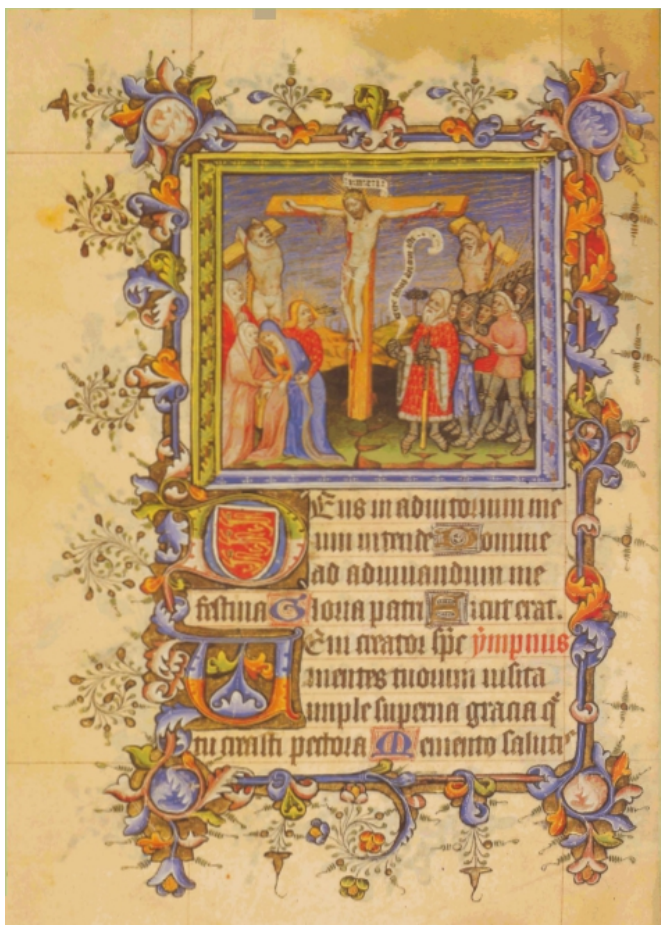 Deus in adiutorium me
um intende Domine
ad adiuuandum me
festina Gloria patri Sicut erat.
Veni creator spe ympnus
mentes tuorum uisita
imple superna gracia q
tu creasti pectora Memento saluti